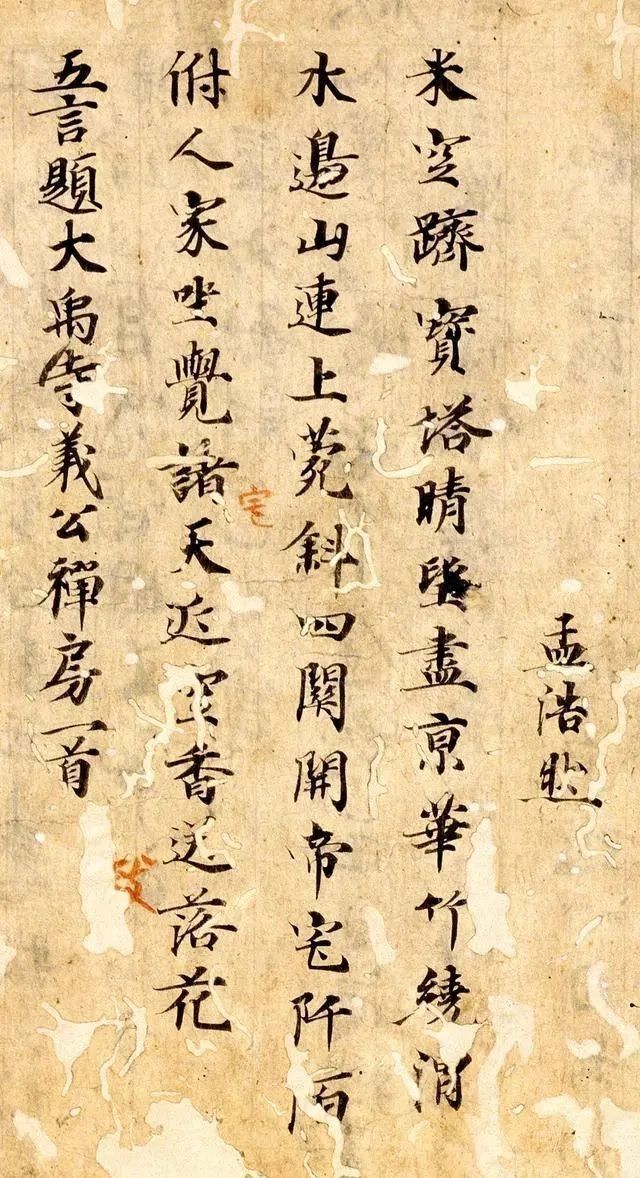 孟浩然
半空躋寳塔晴望盡京華竹繞渭
水邊山連上菀斜四關開帝宅阡陌
俯人家坐覺諸天近空香送落花
宅
五言題大禹寺義公禪房一首